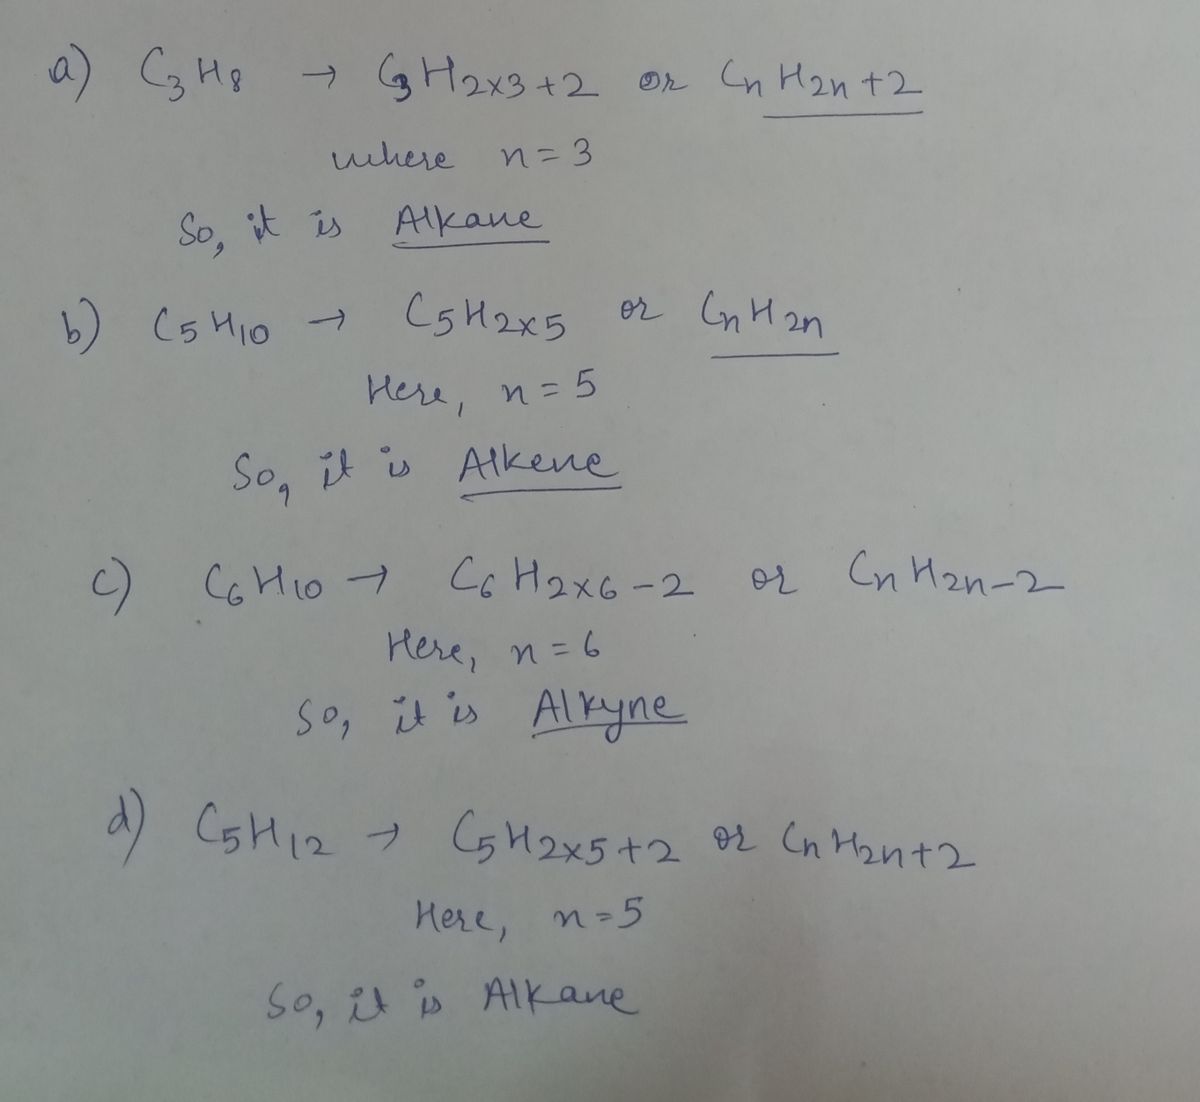 a) C₃H₈ → C₃H₂ₓ₃₊₂ or CₙH₂ₙ₊₂
where n = 3
So, it is Alkane
b) C₅H₁₀ → C₅H₂ₓ₅ or CₙH₂ₙ
Here, n = 5
So, it is Alkene
c) C₆H₁₀ → C₆H₂ₓ₆₋₂ or CₙH₂ₙ₋₂
Here, n = 6
So, it is Alkyne
d) C₅H₁₂ → C₅H₂ₓ₅₊₂ or CₙH₂ₙ₊₂
Here, n = 5
So, it is Alkane